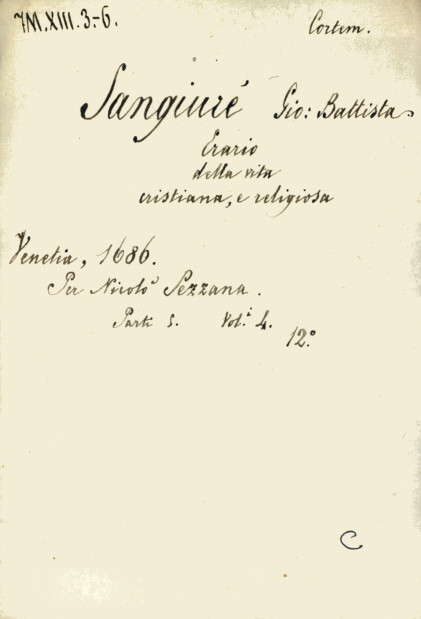 7M.XIII.3-6.
Cortem.
Sangiuré Gio: Battista
Erario
della vita
cristiana, e religiosa
Venetia, 1686.
Per Nicolò Pezzana.
Parti 5. Vol.i 4.
12.o
C